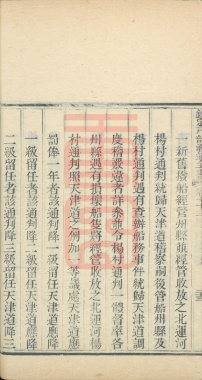 一新舊撥船經管州縣並經管收放之北運河
楊村通判統歸天津道稽察嗣後管船州縣及
楊村通判遇有查辦船務事件統歸天津道調
度稽散違者詳叅並令楊村通判一體督率各
州縣遇有損壞船隻將經管收放之北運河楊
村通判照天津道之例加一等議處天津道應
罰俸一年者該通判降一級留任天津道應降
一級留任者該通判降二級留任天津道應降
二級留任者該通判降三級留任天津道降三